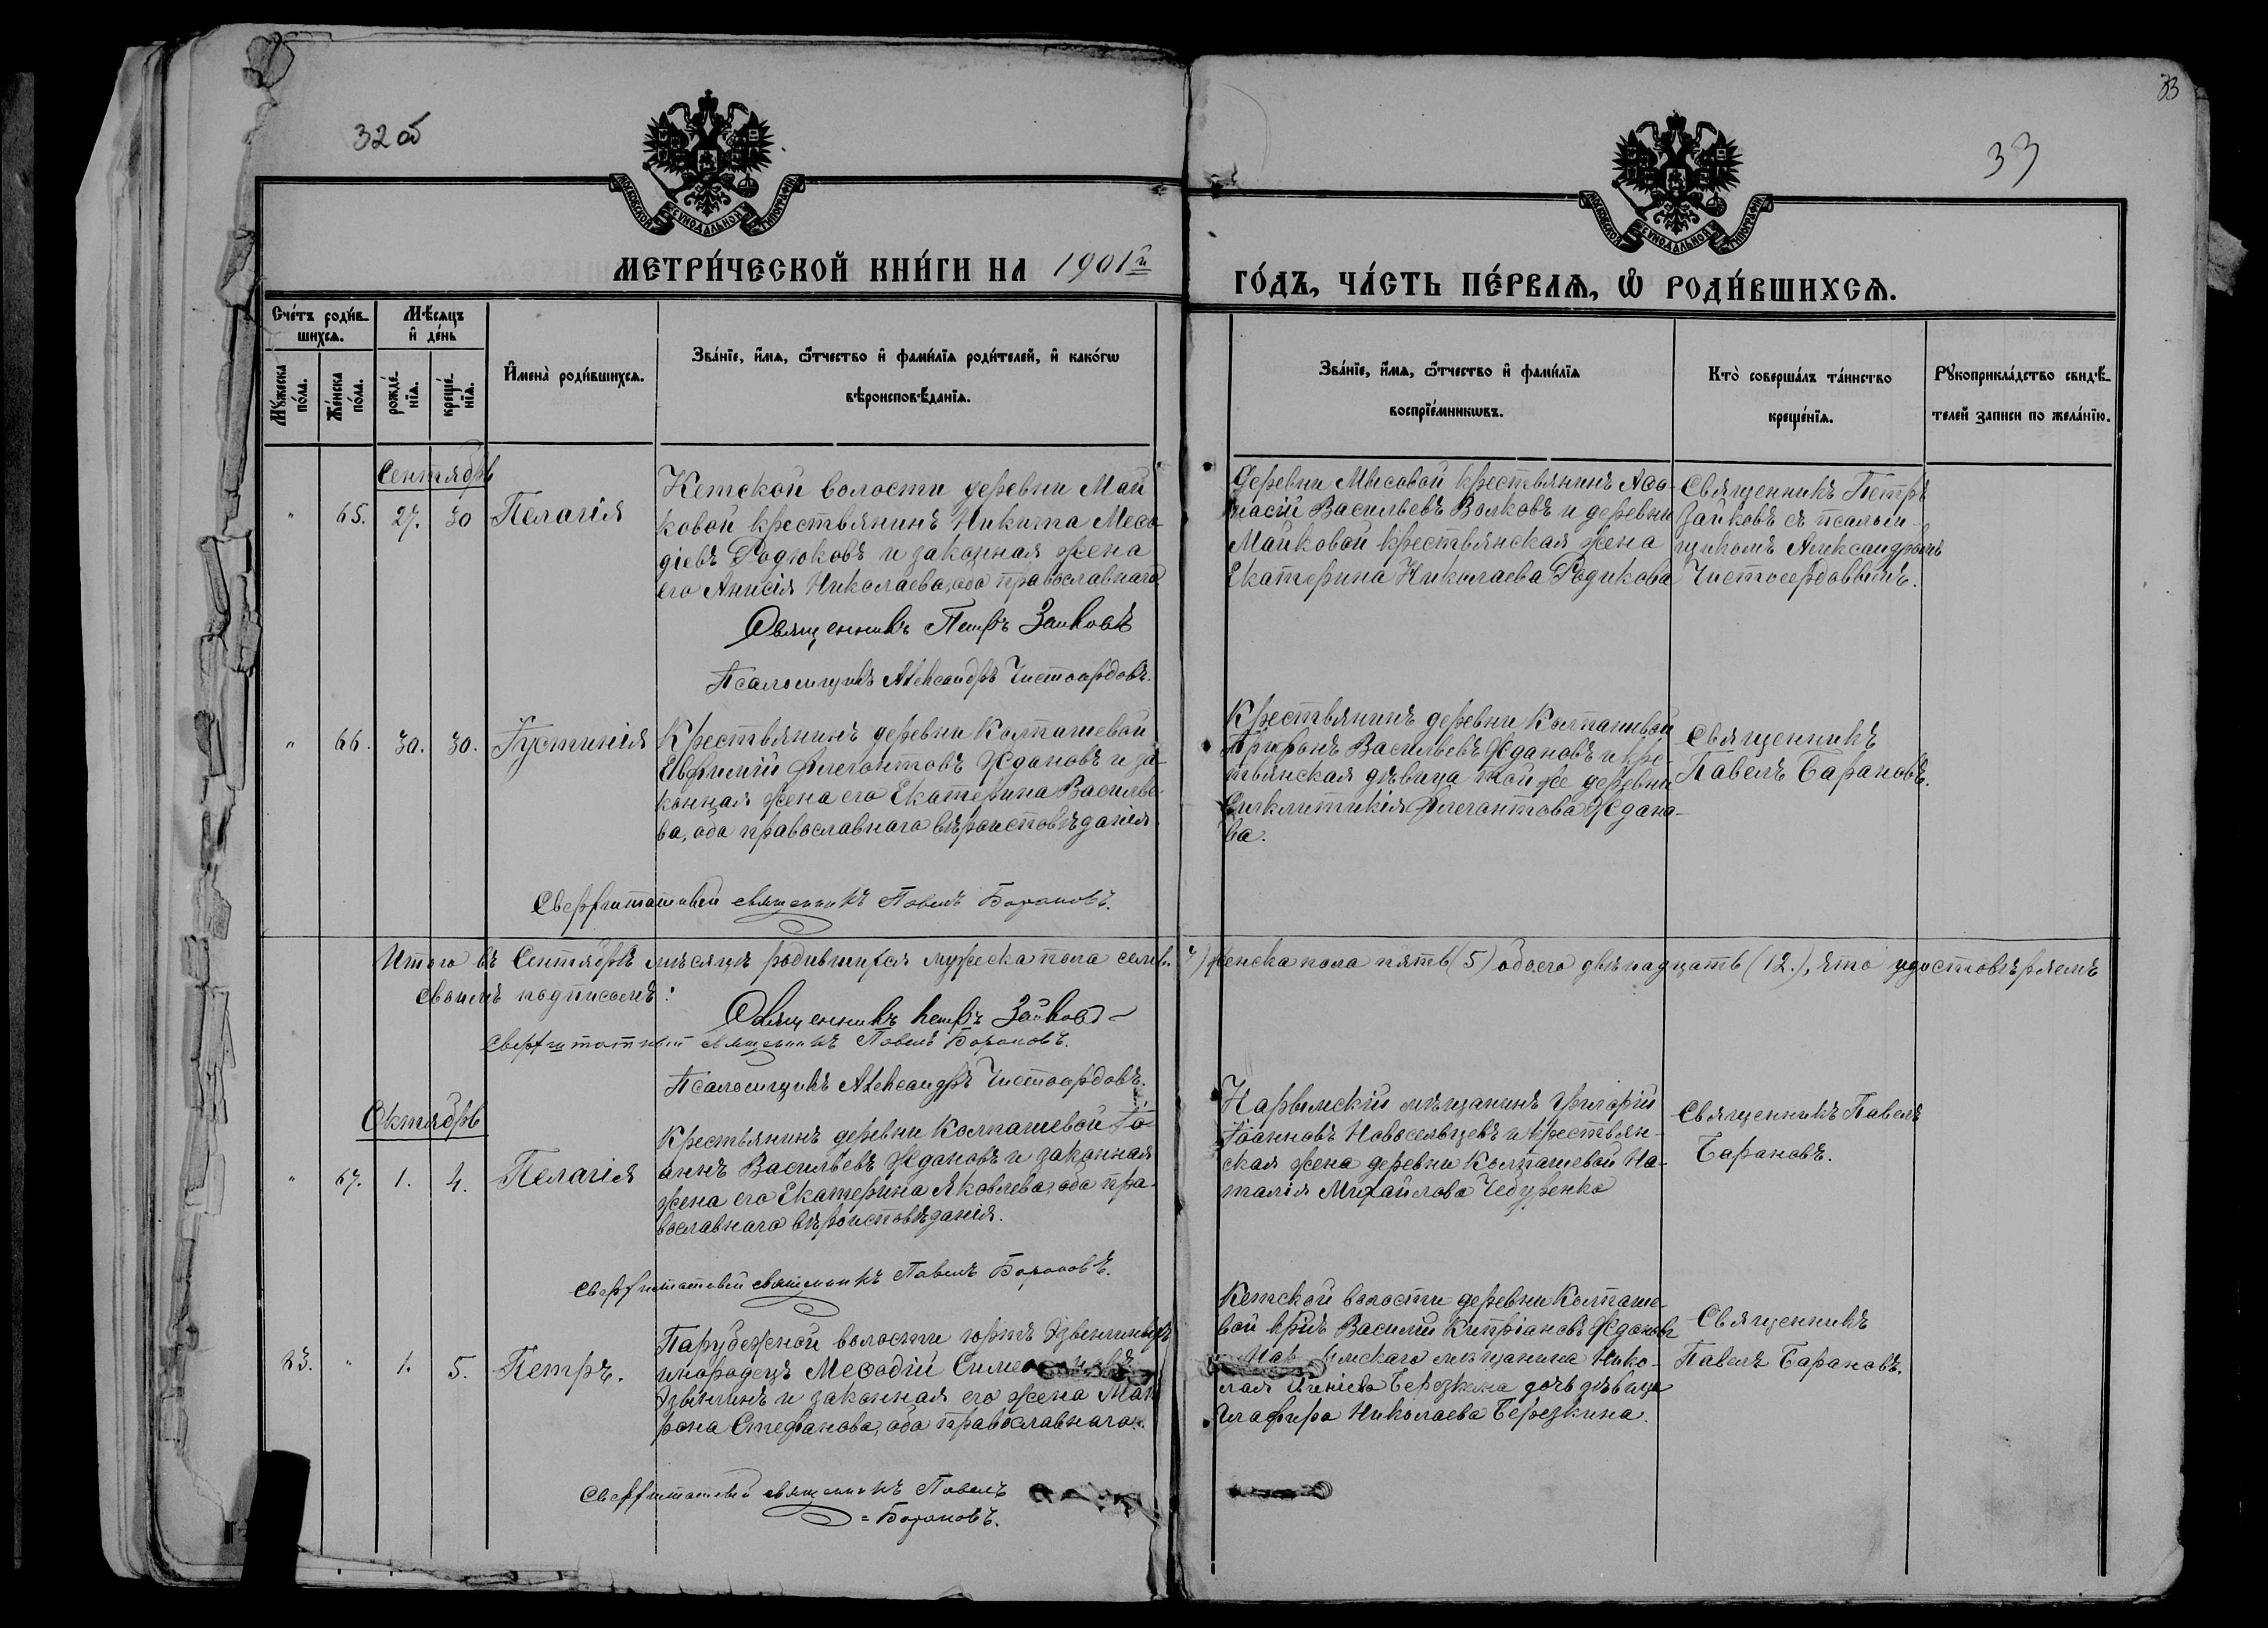 32 об
33
33
МОСКОВСКОЙ СѴНОДАЛЬНОЙ ТИПОГРАФІИ
МОСКОВСКОЙ СѴНОДАЛЬНОЙ ТИПОГРАФІИ
МЕТРИ́ЧЕСКОЙ КНИ́ГИ НА 1901й
ГО́ДЪ, ЧА́СТЬ ПЕ́РВАѦ, Ѡ҆ РОДИ́ВШИХСѦ.
Сче́тъ роди́в-
шихсѧ.
Мѣ́сѧцъ
и҆ де́нь
Мꙋ́жеска
по́ла.
Же́нска
по́ла.
рожде́-
нїѧ.
креще́-
нїѧ.
И҆мена̀ роди́вшихсѧ.
Зва́нїе, и҆́мѧ, ѻ҆́тчество и҆ фами́лїѧ роди́телей, и҆ како́гѡ
вѣроисповѣ́данїѧ.
Зва́нїе, и҆́мѧ, ѻ҆́тчество и҆ фами́лїѧ
воспрїе́мникѡвъ.
Кто̀ соверша́лъ та́инство
креще́нїѧ.
Рꙋкоприкла́дство свидѣ́-
телей записи по жела́нїю.
Сентябрь
" 65. 27. 30 Пелагія
Кетской волости деревни Май
ковой крестьянинъ Никита Меѳо-
діевъ Родюковъ и законная жена
его Анисія Николаева, оба православнаго
Священникъ Петръ Зайковъ
Псаломщикъ Александръ Чистосердовъ.
Деревни Мысовой крестьянинъ Аѳа-
насій Васильевъ Волковъ и деревни
Майковой крестьянская жена
Екатерина Николаева Родикова
Священникъ Петръ
Зайковъ съ псалом-
щикомъ Александромъ
Чистосердовымъ.
" 66. 30. 30. Іустинія
Крестьянинъ деревни Колпашевой
Евфимій Флегонтовъ Ждановъ и за-
конная жена его Екатерина Василье-
ва, оба православнаго вѣроисповѣданія.
Сверхштатный священникъ Павелъ Барановъ.
Крестьянинъ деревни Колпашевой
Трифонъ Васильевъ Ждановъ и кре-
стьянская дѣвица той же деревни
Синклитикія Флегонтова Ждано-
ва.
Священникъ
Павелъ Барановъ.
Итого въ Сентябрѣ мѣсяцѣ родившихся мужеска пола семь 7) женска пола пять (5) обоего двѣнадцать (12.), что удостовѣряемъ
своимъ подписомъ:
Священникъ Петръ Зайковъ
Сверхштатный священникъ Павелъ Барановъ.
Псаломщикъ Александръ Чистосердовъ.
Октябрь
" 67. 1. 4. Пелагія
Крестьянинъ деревни Колпашевой Іо-
аннъ Васильевъ Ждановъ и законная
жена его Екатерина Яковлева, оба пра-
вославнаго вѣроисповѣданія.
Сверхштатный священникъ Павелъ Барановъ.
Нарымскій мѣщанинъ Григорій
Іоанновъ Новосельцевъ и крестьян-
ская жена деревни Колпашевой На-
талія Михайлова Чебуренко
Священникъ Павелъ
Барановъ.
23. " 1. 5. Петръ.
Парубежной волости юртъ
инородецъ Меѳодій
и законная его жена Мат
рона Стефанова, оба православнаго.
Сверхштатный священникъ Павелъ
= Барановъ.
Кетской волости деревни Колпаше-
вой кр. Василій Кипріановъ Ждановъ
мѣщанина Нико-
лая Березкина дочь дѣвица
Глафира Николаева Березкина.
Священникъ
Павелъ Барановъ.